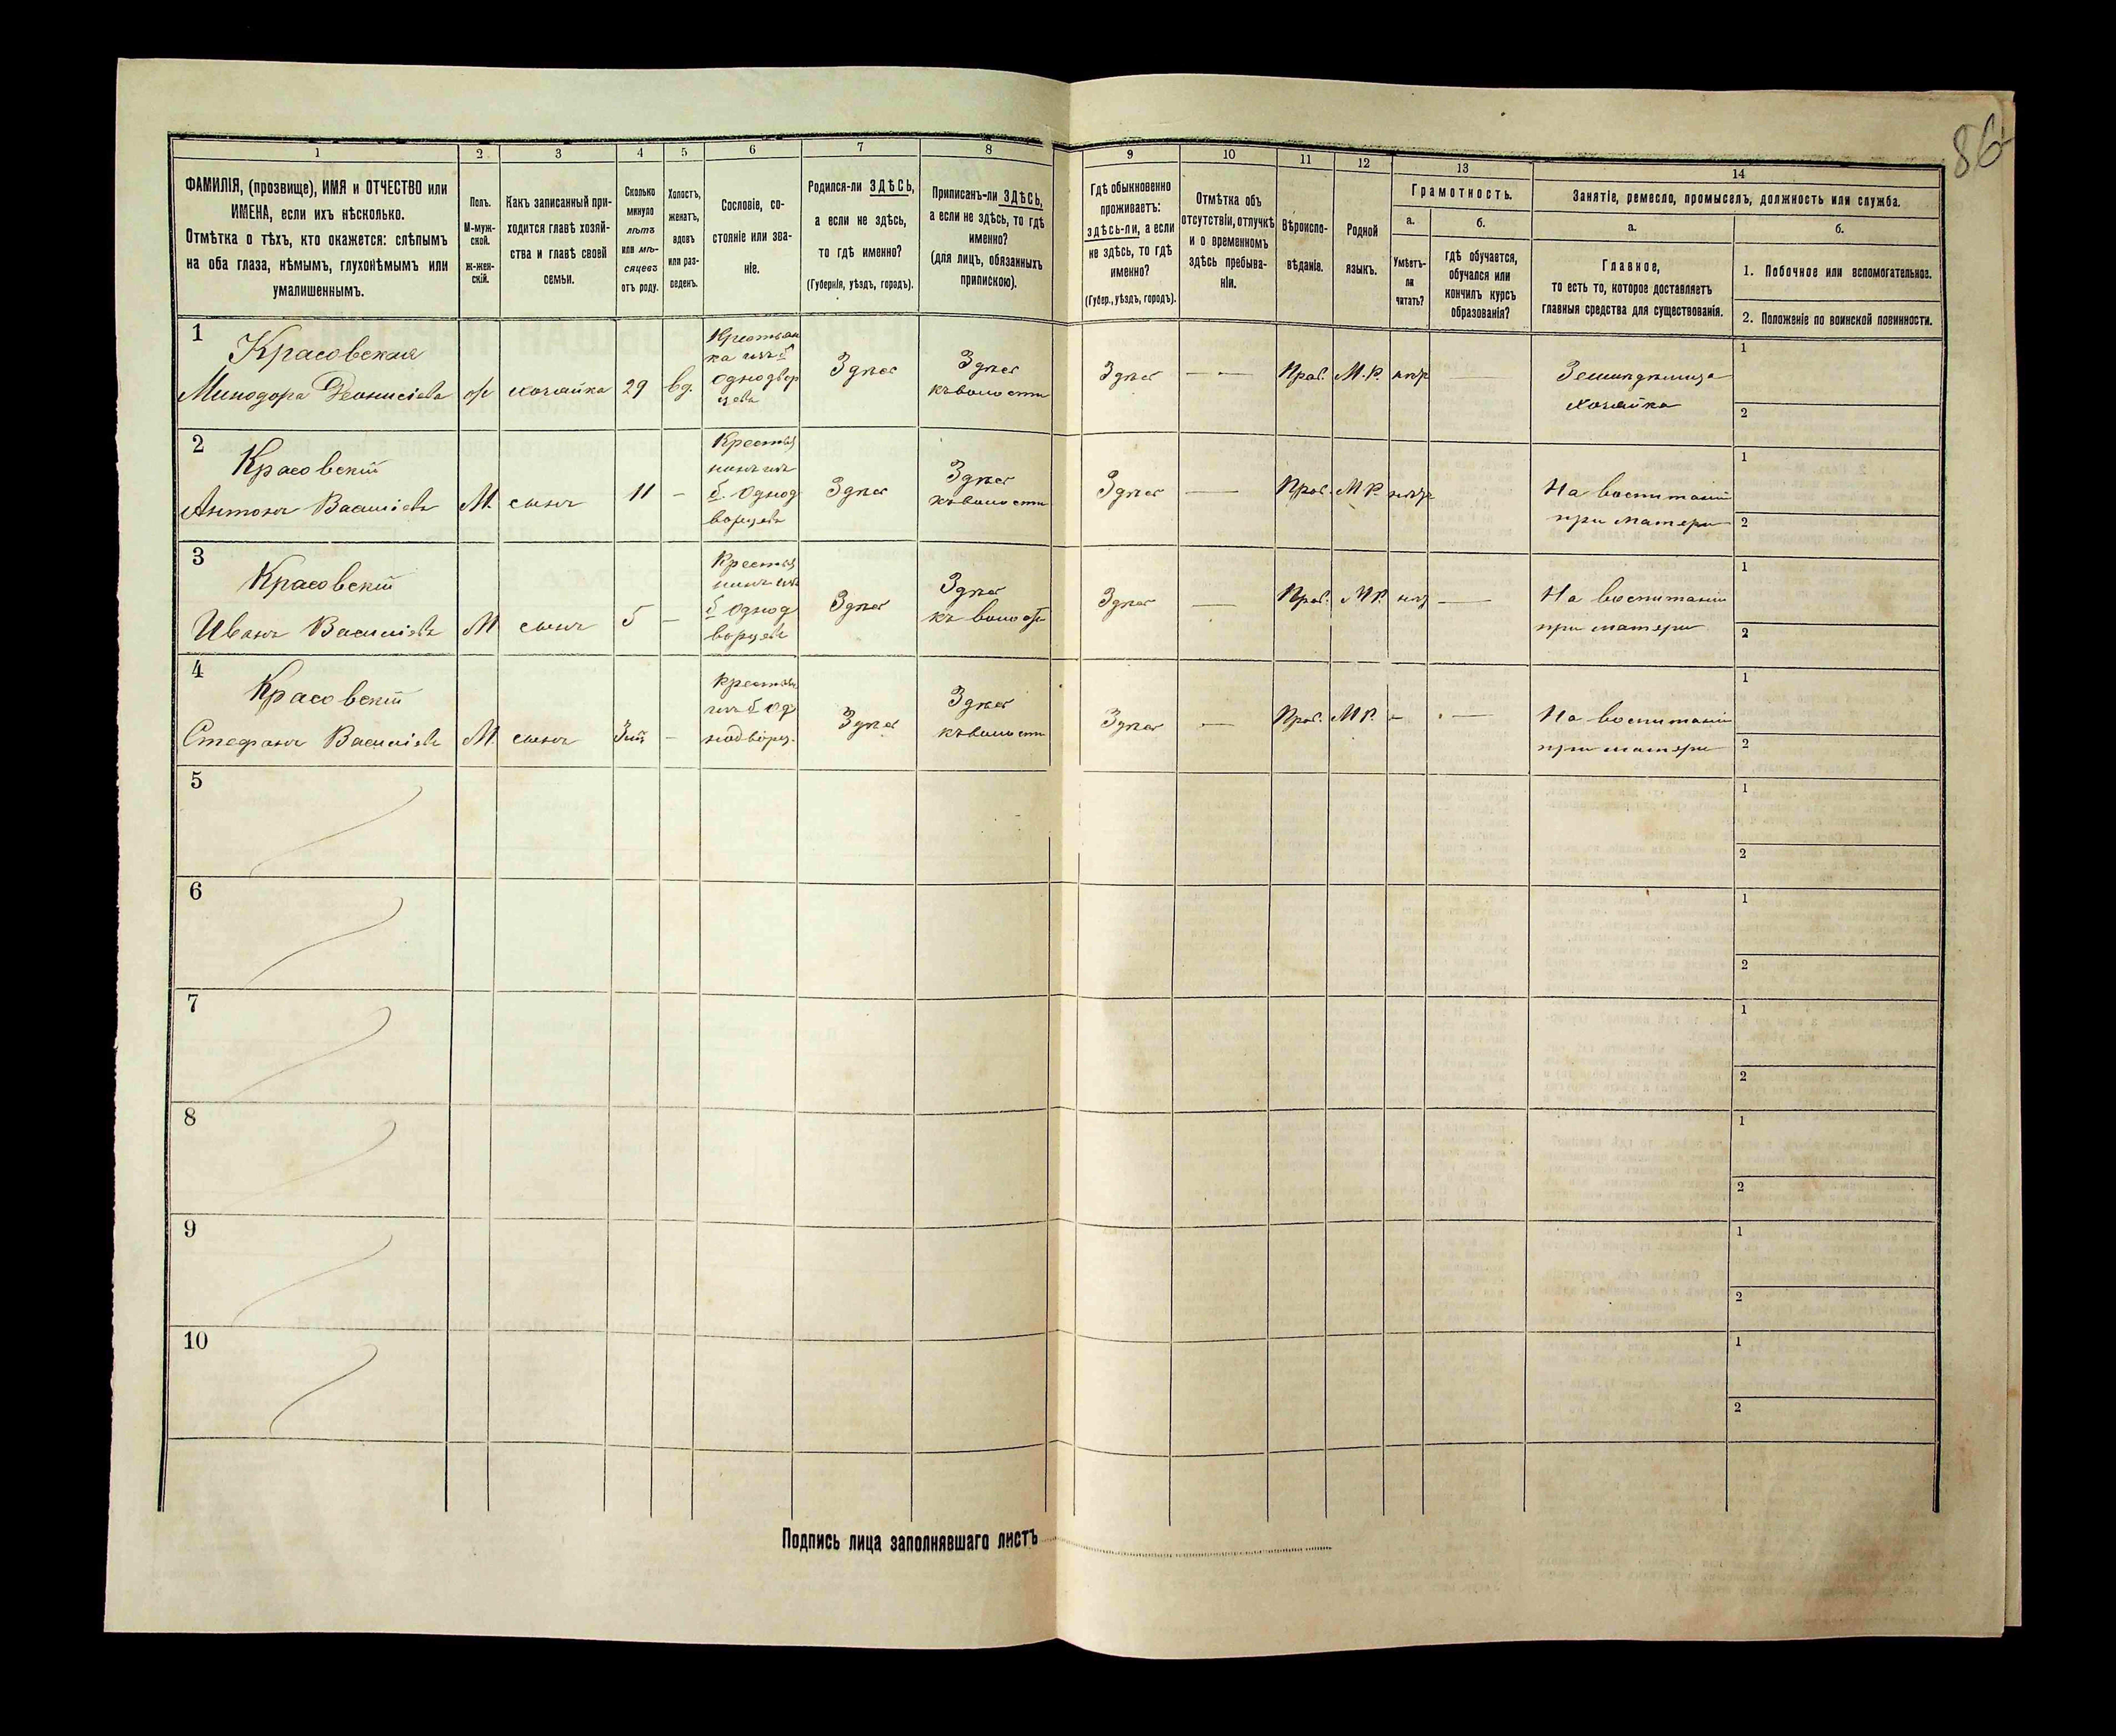 86
1
2
3
4
5
6
7
8
9
10
11
12
13
14
ФАМИЛІЯ, (прозвище), ИМЯ и ОТЧЕСТВО или
ИМЕНА, если ихъ нѣсколько.
Отмѣтка о тѣхъ, кто окажется: слѣпымъ
на оба глаза, нѣмымъ, глухонѣмымъ или
умалишеннымъ.
Полъ.
М-муж-
ской.
ж-жен-
скій.
Какъ записанный при-
ходится главѣ хозяй-
ства и главѣ своей
семьи.
Сколько
минуло
лѣтъ
или мѣ-
сяцевъ
отъ роду.
Холостъ,
женатъ,
вдовъ
или раз-
веденъ.
Сословіе, со-
стояніе или зва-
ніе.
Родился-ли ЗДѢСЬ,
а если не здѣсь,
то гдѣ именно?
(Губернія, уѣздъ, городъ).
Приписанъ-ли ЗДѢСЬ,
а если не здѣсь, то гдѣ
именно?
(для лицъ, обязанныхъ
припискою).
Гдѣ обыкновенно
проживаетъ:
здѣсь-ли, а если
не здѣсь, то гдѣ
именно?
(Губер., уѣздъ, городъ).
Отмѣтка объ
отсутствіи, отлучкѣ
и о временномъ
здѣсь пребыва-
ніи.
Вѣроиспо-
вѣданіе.
Родной
языкъ.
Грамотность.
а.
Умѣетъ-
ли
читать?
б.
гдѣ обучается,
обучался или
кончилъ курсъ
образованія?
Занятіе, ремесло, промыселъ, должность или служба.
а.
Главное,
то есть то, которое доставляетъ
главныя средства для существованія.
б.
1. Побочное или вспомогательное.
2. Положеніе по воинской повинности.
1
Красовская
Минодора Деонисіева
хозяйка
29
вд.
Крестьян
ка изъ б
однодвор
цевъ
Здѣсь
Здѣсь
къ волости
Здѣсь
— —
Прав.
М.Р.
—
Хозяйка
1
2
2
Красовскій
Антонъ Василіевъ
М.
сынъ
11
-
б. однод
ворцевъ
Здѣсь
Здѣсь
къ волости
Здѣсь
—
Прав.
М.Р.
На воспитаніи
при матери
1
2
3
Красовскій
Иванъ Василіевъ
М
сынъ
5
-
б однод
ворцевъ
Здѣсь
Здѣсь
къ волости
Здѣсь
—
Прав.
МР.
—
На воспитаніи
при матери
1
2
4
Красовскій
Стефанъ Василіевъ
М.
сынъ
-
изъ б од
нодворц.
Здѣсь
Здѣсь
къ волости
Здѣсь
—
Прав.
МР.
-
—
На воспитаніи
при матери
1
2
5
1
2
6
1
2
7
1
2
8
1
2
9
1
2
10
1
2
Подпись лица заполнявшаго листъ